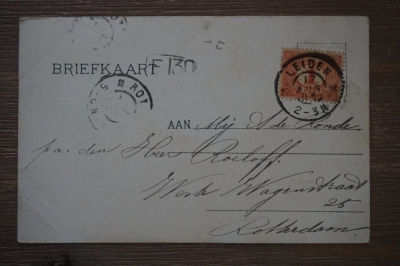 BRIEFKAART
F 130
LEIDEN
2-3N
ROT
AAN Mej A de Ronde
pa. den Heer Roeloff.
Wagenstraat
25
Rotterdam